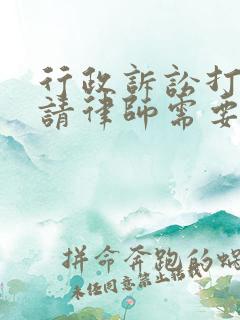 行政訴訟打
請律師需要
拼命奔跑的蝸
未经同意禁止转载